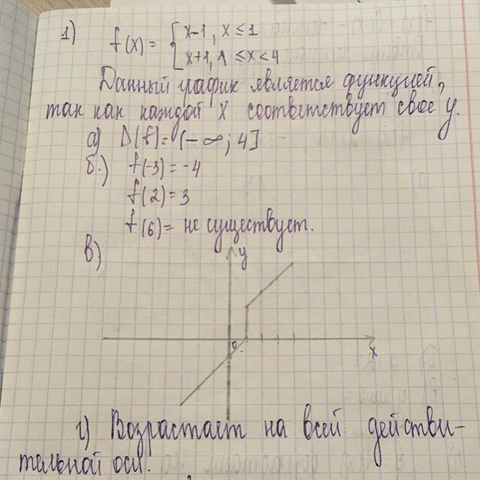 1) f(x) = { x-1, x ≤ 1
x+1, 1 ≤ x < 4
Данный график является функцией,
так как каждой x соответствует свое y.
а) D(f) = (-∞; 4]
б.) f(-3) = -4
f(2) = 3
f(6) = не существует.
в)
y
0
x
г) Возрастает на всей действи-
тельной оси.